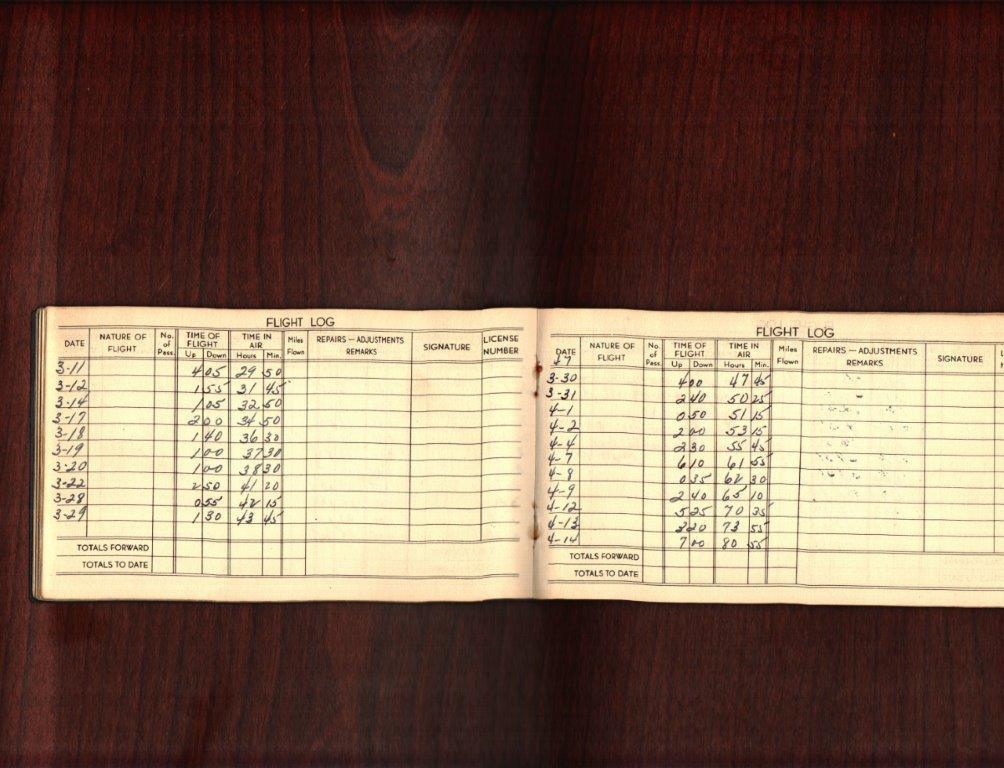 FLIGHT LOG
DATE NATURE OF FLIGHT No. of Pass. TIME OF FLIGHT Up Down TIME IN AIR Hours Min. Miles Flown REPAIRS — ADJUSTMENTS REMARKS SIGNATURE LICENSE NUMBER
3-11 4 05 29 50
3-12 1 55 31 45
3-14 1 05 32 50
3-17 2 00 34 50
3-18 1 40 36 30
3-19 1 00 37 30
3-20 1 00 38 30
3-22 2 50 41 20
3-28 0 55 42 15
3-29 1 30 43 45
TOTALS FORWARD
TOTALS TO DATE
FLIGHT LOG
DATE NATURE OF FLIGHT No. of Pass. TIME OF FLIGHT Up Down TIME IN AIR Hours Min. Miles Flown REPAIRS — ADJUSTMENTS REMARKS SIGNATURE
47
3-30 4 00 47 45
3-31 2 40 50 25
4-1 0 50 51 15
4-2 2 00 53 15
4-4 2 30 55 45
4-7 6 10 61 55
4-8 0 35 62 30
4-9 2 40 65 10
4-12 5 25 70 35
4-13 3 20 73 55
4-14 7 00 80 55
TOTALS FORWARD
TOTALS TO DATE